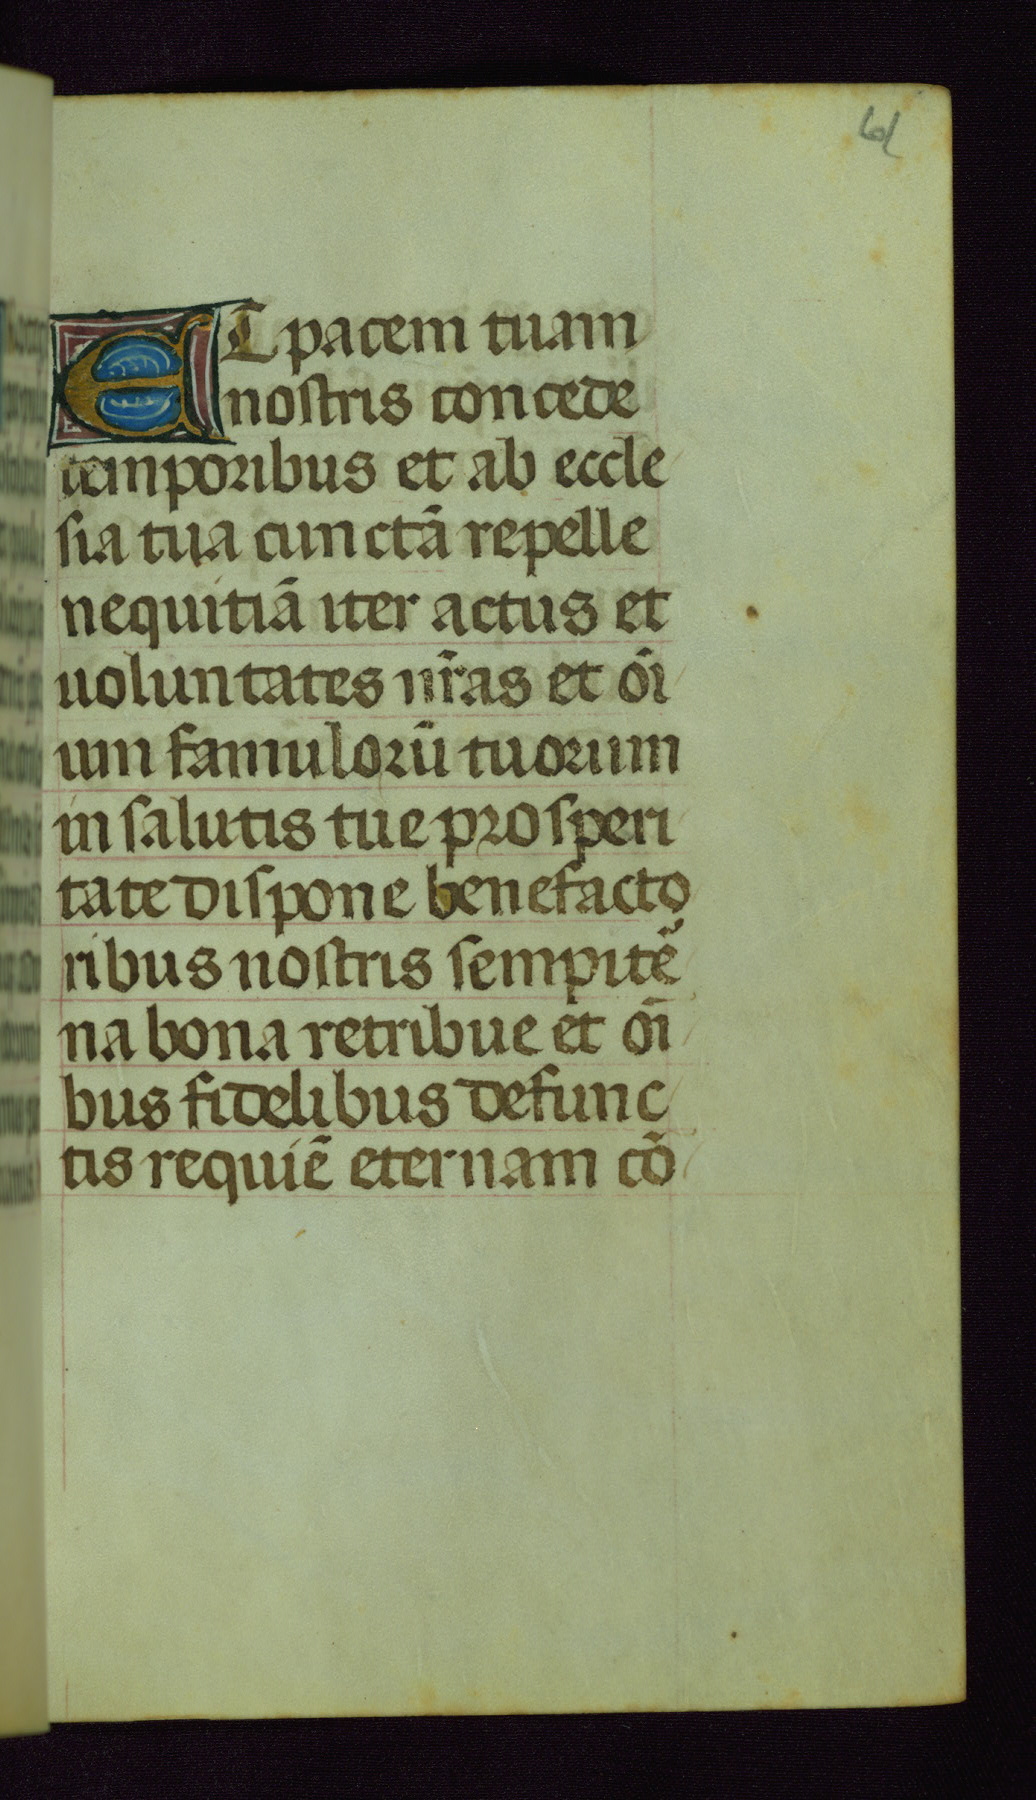 61
Et pacem tuam
nostris concede
temporibus et ab eccle
sia tua cunctā repelle
nequitiā iter actus et
uoluntates nr̄as et oı̄
um famulorū tuorum
in salutis tue prosperi
tate dispone benefacto
ribus nostris sempitē
na bona retribue et oı̄
bus fidelibus defunc
tis requiē eternam cō